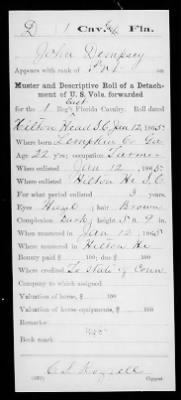 D | 1 | Cav. | Fla.
John Dempsey
Appears with rank of Pvt on
Muster and Descriptive Roll of a Detach-
ment of U. S. Vols. forwarded
for the 1 Reg't Florida Cavalry. Roll dated
Hilton Head S.C. Jan 12, 1865.
Where born Lumpkin Co Ga
Age 22 y'rs; occupation Farmer
When enlisted Jan 12, 1865.
Where enlisted Hilton He S.C.
For what period enlisted 3 years.
Eyes Hazel; hair Brown
Complexion Dark; height 5 ft. 9 in.
When mustered in Jan 12, 1865.
Where mustered in Hilton He
Bounty paid $ 100; due $ 100
Where credited To State of Conn
Company to which assigned
Valuation of horse, $ 100
Valuation of horse equipments, $ 100
Remarks:
Book mark:
Copyist.